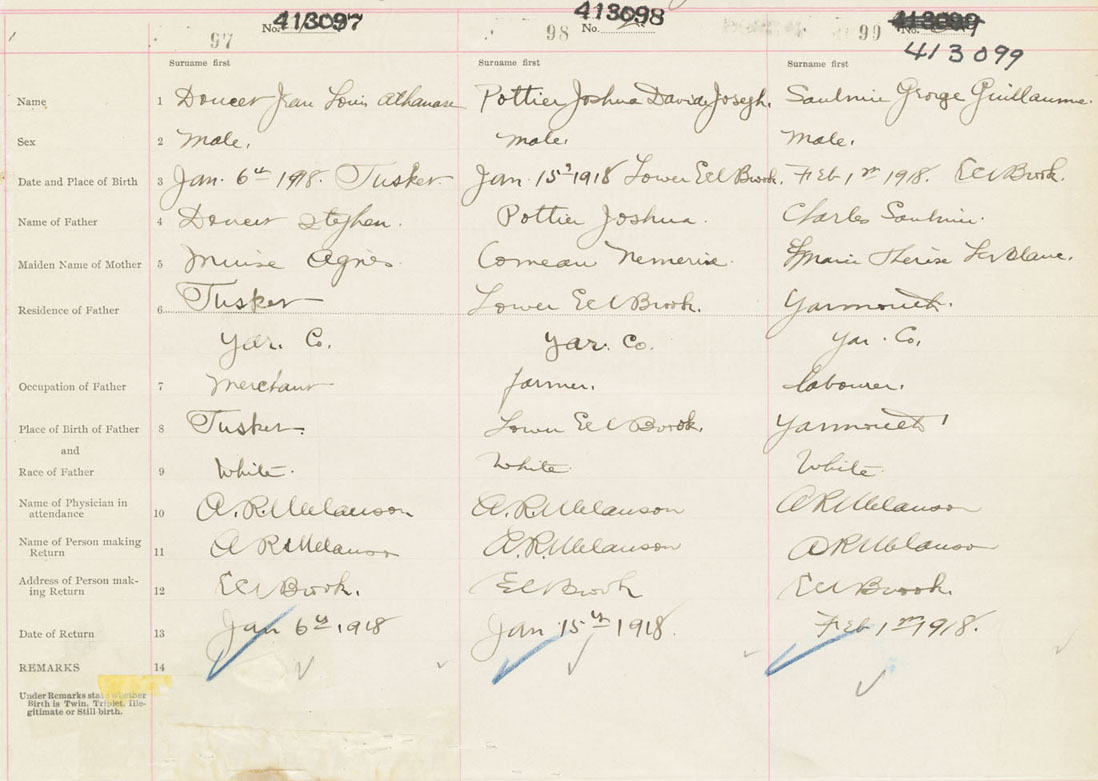 No. 413097 No. 413098 No. 413099
97 98 99
413099
Surname first Surname first Surname first
Name 1 Doucet Jean Louis Athanase Pottier Joshua David Joseph. Saulnier George Guillaume.
Sex 2 Male. Male. Male.
Date and Place of Birth 3 Jan. 6th 1918. Tusket. Jan. 15 1918 Lower Eel Brook. Feb 1 1918. Eel Brook.
Name of Father 4 Doucet Stephen. Pottier Joshua. Charles Saulnier.
Maiden Name of Mother 5 Muise Agnes. Comeau Marie Thérèse LeBlanc.
Residence of Father 6 Tusket Lower Eel Brook. Yarmouth.
Yar. Co. Yar. Co. Yar. Co.
Occupation of Father 7 Merchant farmer. labourer.
Place of Birth of Father 8 Tusket. Lower Eel Brook. Yarmouth
and
Race of Father 9 White. White White
Name of Physician in
attendance 10 A. R. Melanson A. R. Melanson A R Melanson
Name of Person making
Return 11 A R Melanson A. R. Melanson A R Melanson
Address of Person mak-
ing Return 12 Eel Brook. Eel Brook Eel Brook.
Date of Return 13 Jan 6th 1918 Jan 15th 1918. Feb 1 1918.
REMARKS 14
Under Remarks state whether
Birth is Twin, Triplet, Ille-
gitimate or Still birth.